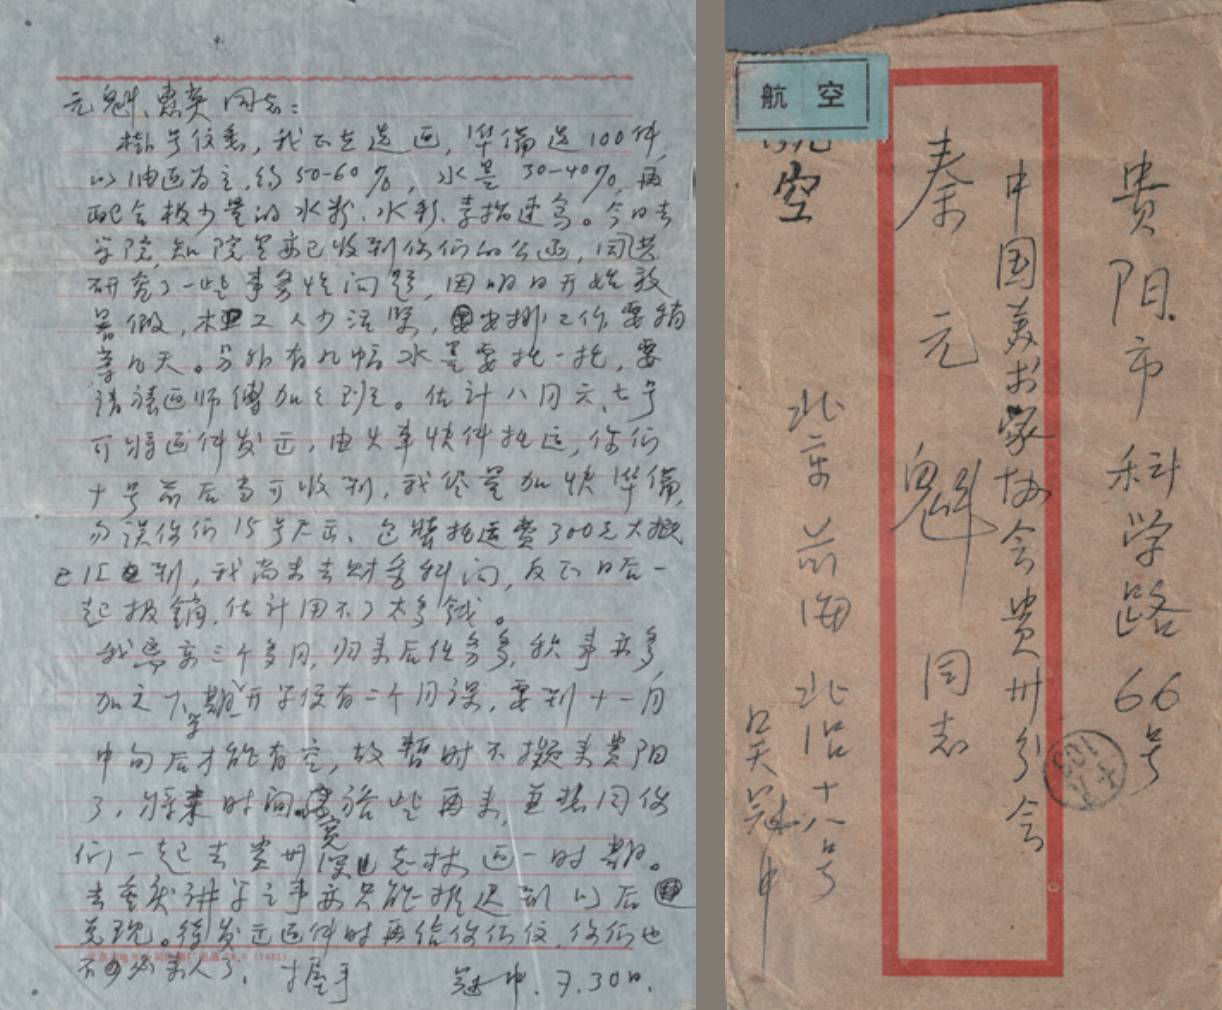 元魁、惠英同志：
挂号信悉，我正在选画，準備选100件，
以油画为主，约50-60%，水墨30-40%，再
配合极少量的水粉、水彩、素描速写。今日去
学院，知院里亦已收到你们的公函，同共
研究了一些事务性问题，因明日开始放
暑假，木工人少活紧，安排工作要稍
等几天。另外有几幅水墨要托一托，要
请裱画师傅加加班。估计八月六、七号
可将画件发运，由火车快件托运，你们
十号前后当可收到，我尽量加快準備，
勿误你们15号展出、包装托运费300元大概
已汇到，我尚未去财务科问，反正日后一
起报销，估计用不了太多钱。
我离京三个多月，归来后任务多，积事亦多，
加之下学期开学便有二个月课，要到十一月
中旬后才能有空，故暂时不擬来贵阳
了，将来时间宽裕些再来，並想同你
们一起去贵州深山老林画一时期。
去重庆讲学之事亦只能推迟到以后
兑现。待发运画件时再给你们信，你们也
不必来人了，握手
冠中.7.30日.
航空
航空
贵阳市科学路66号
中国美术家协会贵州分会
秦元魁同志
北京前海北沿十八号
吴冠中